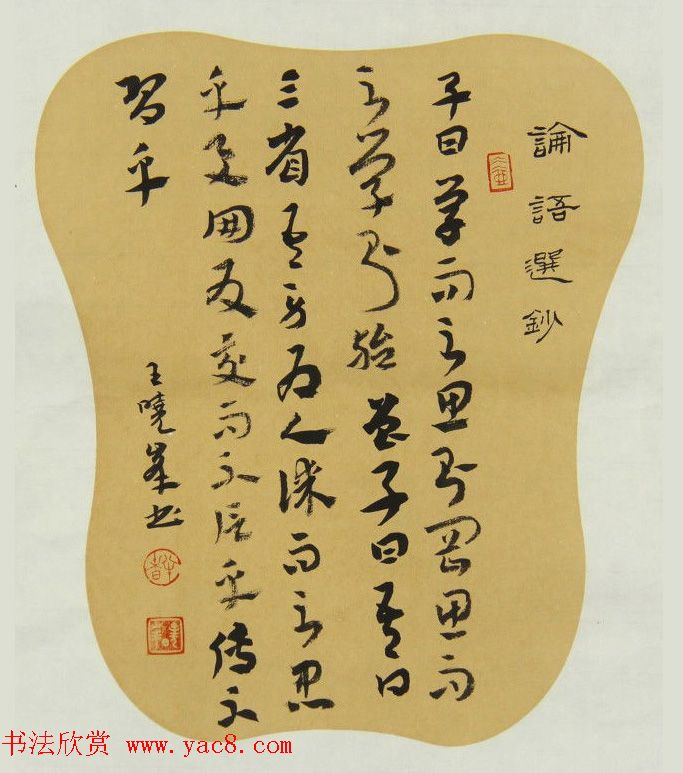 論語選鈔
子曰學而不思則罔思而
不學則殆曾子曰吾日
三省吾身為人謀而不忠
乎與朋友交而不信乎傳不
習乎
王曉峯书
书法欣赏 www.yac8.com